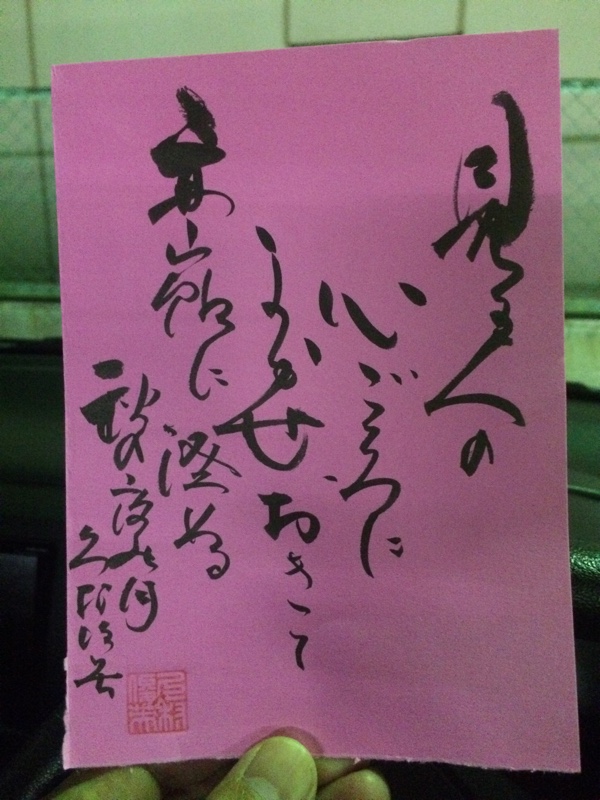 見る人の
心ごころに
まかせおきて
高嶺に澄める
秋の夜の月